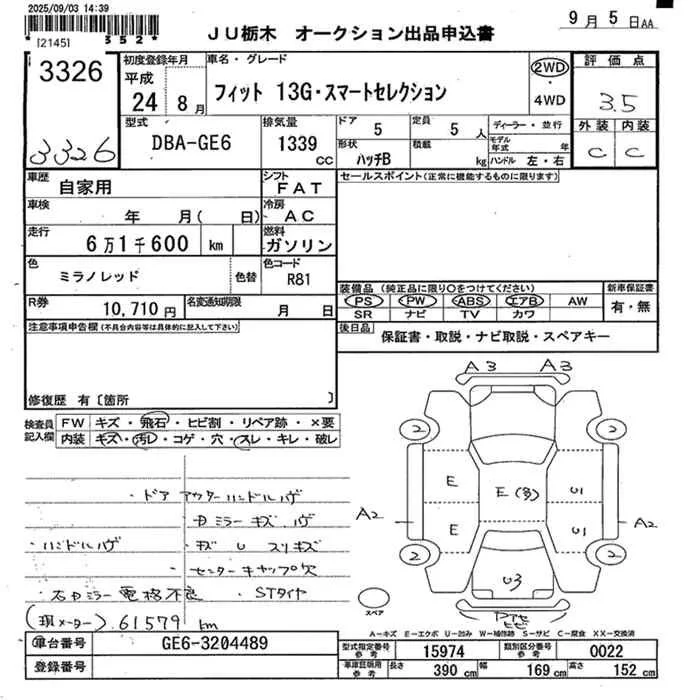 2025/09/03 14:39
[2145] 352*
JU栃木 オークション出品申込書
9月5日AA
3326
3326
初度登録年月
平成
24 8月
車名・グレード
フィット 13G・スマートセレクション
2WD
・
4WD
評価点
3.5
外装 内装
C C
型式
DBA-GE6
排気量
1339
CC
ドア
5
定員
5人
ディーラー・並行
形状
ハッチB
積載
kg
モデル年式 年
ハンドル 左・右
車歴
自家用
シフト
FAT
セールスポイント(正常に機能するものに限ります)
車検
年 月( 日)
冷房
AC
走行
6万1千600 km
燃料
ガソリン
色
ミラノレッド
色替
色コード
R81
装備品 (純正品に限り○をつけてください)
PS PW ABS エアB AW
SR ナビ TV カワ
新車保証書
有・無
R券
10,710円
名変通知期限
月 日
後日品
保証書・取説・ナビ取説・スペアキー
注意事項申告欄(不具合内容等は具体的に記入して下さい)
修復歴 有〔箇所 〕
検査員記入欄
FW キズ・飛石・ヒビ割・リペア跡・×要
内装 キズ・汚レ・コゲ・穴・スレ・キレ・破レ
・ドアアウターハンドルハゲ
・ハンドルハゲ
・センターキャップ欠
・右Dミラー電格不良
STタイヤ
(現メーター) 61579 km
A3 A3
2 2
E E(多) U1
A2 E U1 A2
2 2
U3
スペア
A－キズ E－エクボ U－凹み W－補修跡 S－サビ C－腐食 XX－交換済
車台番号
GE6-3204489
登録番号
型式指定番号
参考
15974
類別区分番号
参考
0022
車庫証明用
参考
長さ
390 cm
幅
169 cm
高さ
152 cm